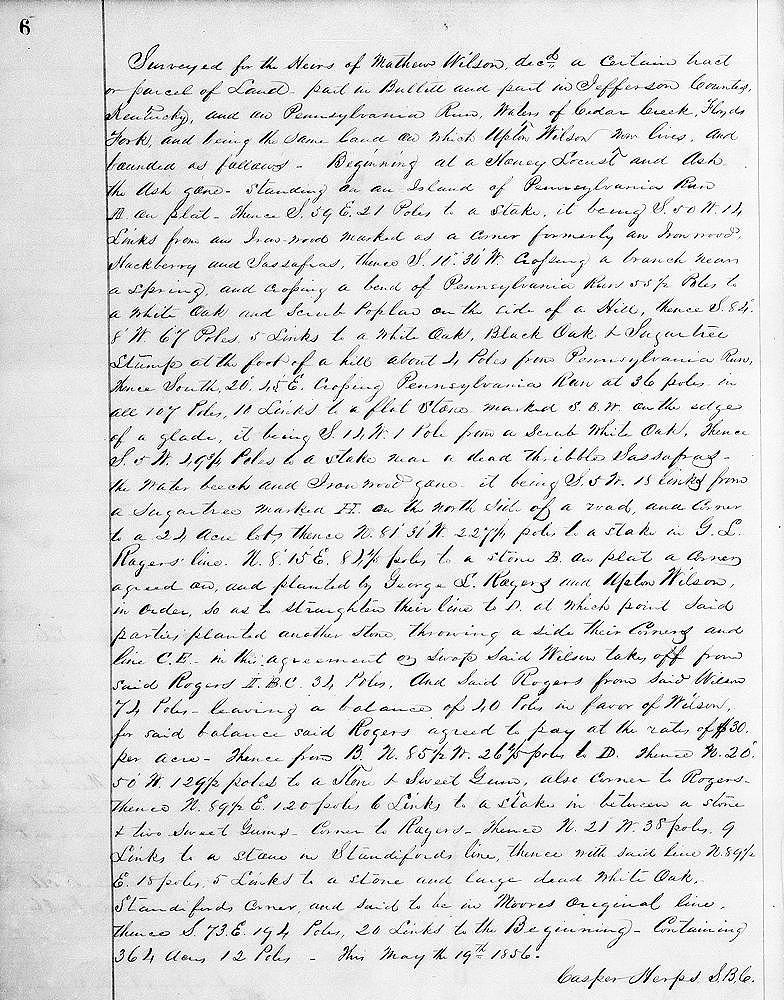 6
Surveyed for the Heirs of Mathew Wilson, decd. a Certain tract
or parcel of Land part in Bullitt and part in Jefferson Counties,
Kentucky, and on Pennsylvania Run, Waters of Cedar Creek, Floyds
Fork, and being the same land on which Upton Wilson now lives, and
bounded as follows - Beginning at a Honey Locust and Ash
the Ash gone - Standing on an Island of Pennsylvania Run
A on plat - Thence S. 39 E. 21 Poles to a Stake, it being S. 50 W. 14
Links from an Iron-wood marked as a Corner formerly an Ironwood,
Hackberry and Sassafras, thence S. 16° 30' W. Crossing a branch near
a Spring, and Crossing a bend of Pennsylvania Run 55 1/2 Poles to
a White Oak and Scrub Poplar on the side of a Hill, thence S. 84°
8' W. 67 Poles, 5 Links to a White Oak, Black Oak & Sugartree
Stump at the foot of a hill about 4 Poles from Pennsylvania Run,
Thence South, 20° 45 E. Crossing Pennsylvania Run at 36 poles in
all 107 Poles, 10 Links to a flat Stone marked S. B. W. on the edge
of a glade, it being S. 14 W. 1 Pole from a Scrub White Oak, Thence
S. 5 W. 49 3/4 Poles to a stake near a dead thribble Sassafras -
the Water beech and Ironwood gone - it being S. 5 W. 18 Links from
a Sugartree marked H. on the north side of a road, and Corner
to a 24 Acre lot, thence N. 81° 31' W. 227 1/4 poles to a stake in G. L.
Rogers' line. N. 8° 15 E. 84 1/2 poles to a stone B. on plat a Corner
agreed on, and planted by George L. Rogers and Upton Wilson,
in order, so as to straighten their line to D. at which point Said
parties planted another Stone, throwing a side their Corners and
line C. E. - in this agreement or Swop Said Wilson takes off from
said Rogers II. B. C. 34 Poles, And Said Rogers from Said Wilson
74 Poles - leaving a balance of 40 Poles in favor of Wilson,
for said balance said Rogers agreed to pay at the rates of $30.
per acre - Thence from B. N. 85 1/2 W. 26 4/5 poles to D. Thence N. 20°
50' W. 129 1/2 poles to a Stone & Sweet Gum, also Corner to Rogers -
thence N. 89 1/2 E. 120 poles 6 Links to a Stake in between a stone
& two Sweet Gums - Corner to Rogers - Thence N. 21° W. 38 poles, 9
Links to a stone in Standifords line, thence with said line N. 89 1/2
E. 18 poles, 5 Links to a stone and large dead White Oak,
Standifords Corner, and said to be in Moores Original line,
thence S. 73. E. 194 Poles, 20 Links to the Beginning - Containing
364 Acres 12 Poles - This May the 19th 1856.
Casper Herps. S.B.C.